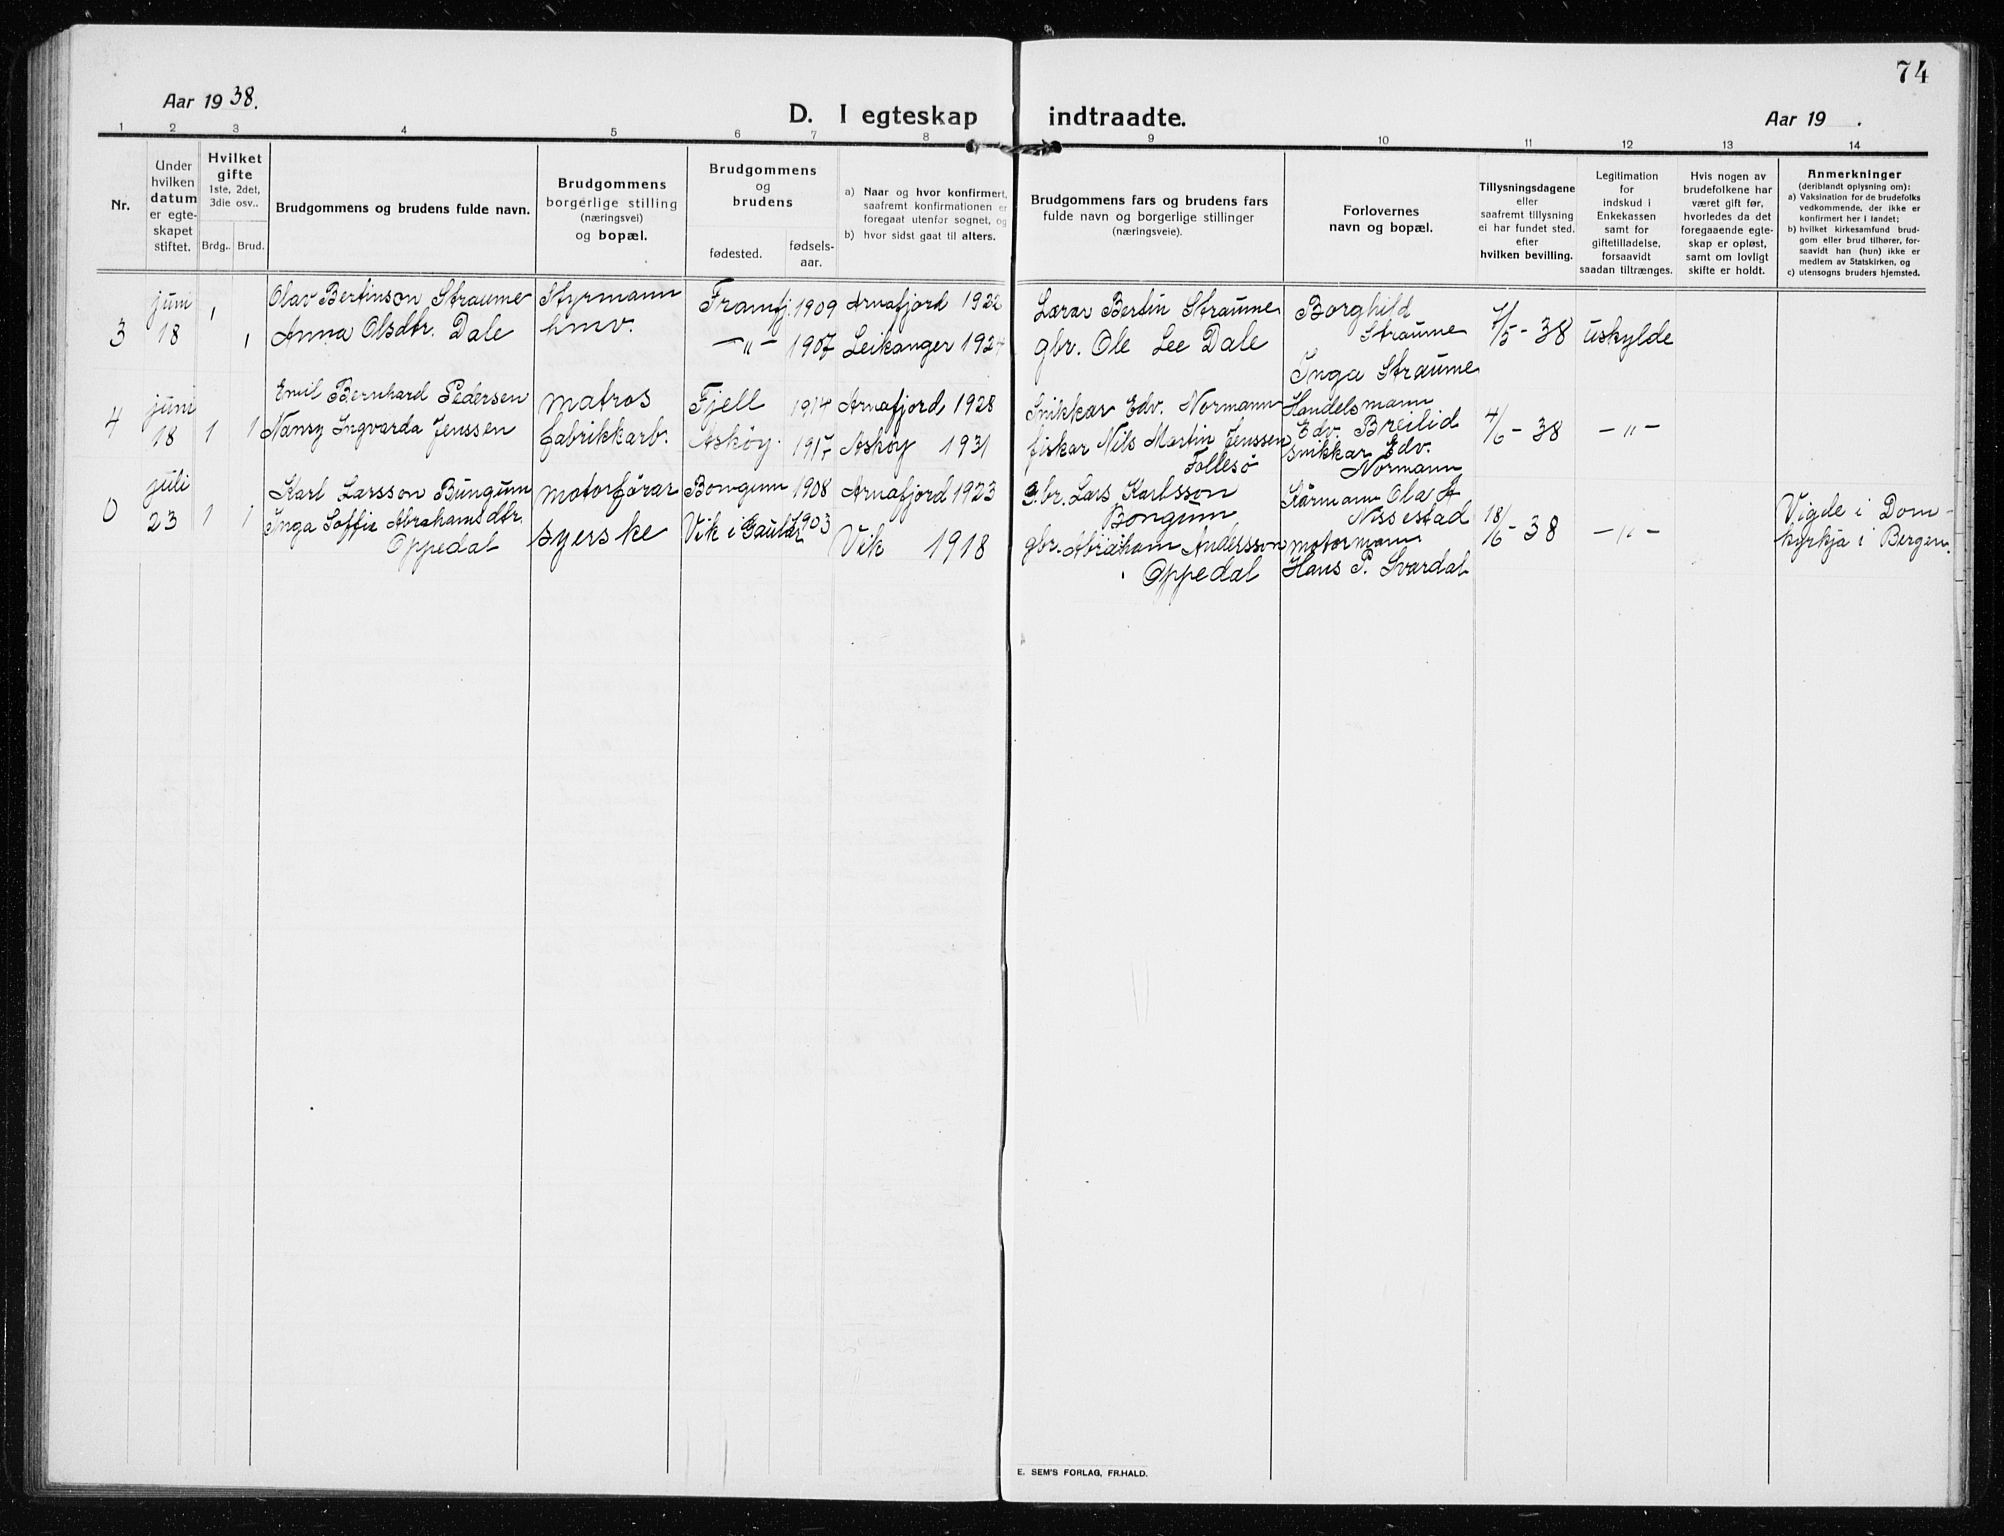 74
Aar 1938.
D. I egteskap indtraadte.
Aar 19 .
1 2 3 4 5 6 7 8 9 10 11 12 13 14
Nr.
Under
hvilken
datum
er egte-
skapet
stiftet.
Hvilket
gifte
1ste, 2det,
3die osv..
Brdg.. Brud.
Brudgommens og brudens fulde navn.
Brudgommens
borgerlige stilling
(næringsvei)
og bopæl.
Brudgommens
og
brudens
fødested.
fødsels-
aar.
a) Naar og hvor konfirmert,
saafremt konfirmationen er
foregaat utenfor sognet, og
b) hvor sidst gaat til alters.
Brudgommens fars og brudens fars
fulde navn og borgerlige stillinger
(næringsveie).
Forlovernes
navn og bopæl.
Tillysningsdagene
eller
saafremt tillysning
ei har fundet sted,
efter
hvilken bevilling.
Legitimation
for
indskud i
Enkekassen
samt for
giftetilladelse,
forsaavidt
saadan tiltrænges.
Hvis nogen av
brudefolkene har
været gift før,
hvorledes da det
foregaaende egte-
skap er opløst,
samt om lovligt
skifte er holdt.
Anmerkninger
(deriblandt oplysning om):
a) Vaksination for de brudefolks
vedkommende, der ikke er
konfirmert her i landet;
b) hvilket kirkesamfund brud-
gom eller brud tilhører, for-
saavidt han (hun) ikke er
medlem av Statskirken, og
c) utensogns bruders hjemsted.
3
juni
18
1
1
Olav Bertinson Straume
Anna Olsdtr. Dale
Styrmann
hmv.
Framfj. 1909
—"— 1907
Arnafjord 1922
Leikanger 1924
Lærar Bertin Straume
gbr. Ole Lee Dale
Borghild
Straume
Inga Straume
/5 - 38
uskylde
4
juni
18
1
1
Emil Bernhard Pedersen
Nansy Ingvarda Jenssen
matros
fabrikkarb.
Fjell 1914
Askøy. 1917
Arnafjord, 1928
Askøy 1931
Snikkar Edv. Normann
fiskar Nils Martin Jenssen
Follesø
Handelsmann
Edv. Breilid
Snikkar Edv.
Normann
4/6 - 38
—"—
0
juli
23
1
1
Karl Larsson Bungum
Inga Soffie Abrahamsdtr.
Oppedal
motorførar
syerske
Bongum 1908
Vik i Gaular 1903
Arnafjord 1923
Vik 1918
gbr. Lars Karlsson
Bongum
gbr. Abraham Andersson
Oppedal
Ola
Nissestad
motormann
Hans P. Svardal
18/6 - 38
—"—
Vigde i Dom-
kyrkja i Bergen.
E. SEM'S FORLAG, FR.HALD.